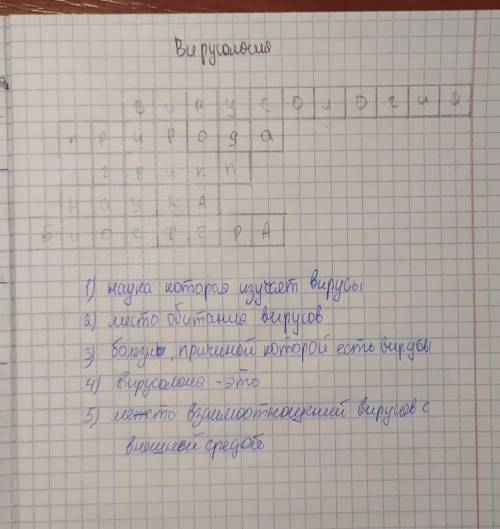 Вирусология
ВИРУСОЛОГИЯ
природа
грипп
НАУКА
БИОСФЕРА
1) наука которая изучает вирусы
2) место обитания вирусов
3) болезнь, причиной которой есть вирусы
4) вирусология - это
5) место взаимоотношений вирусов с
внешней средой